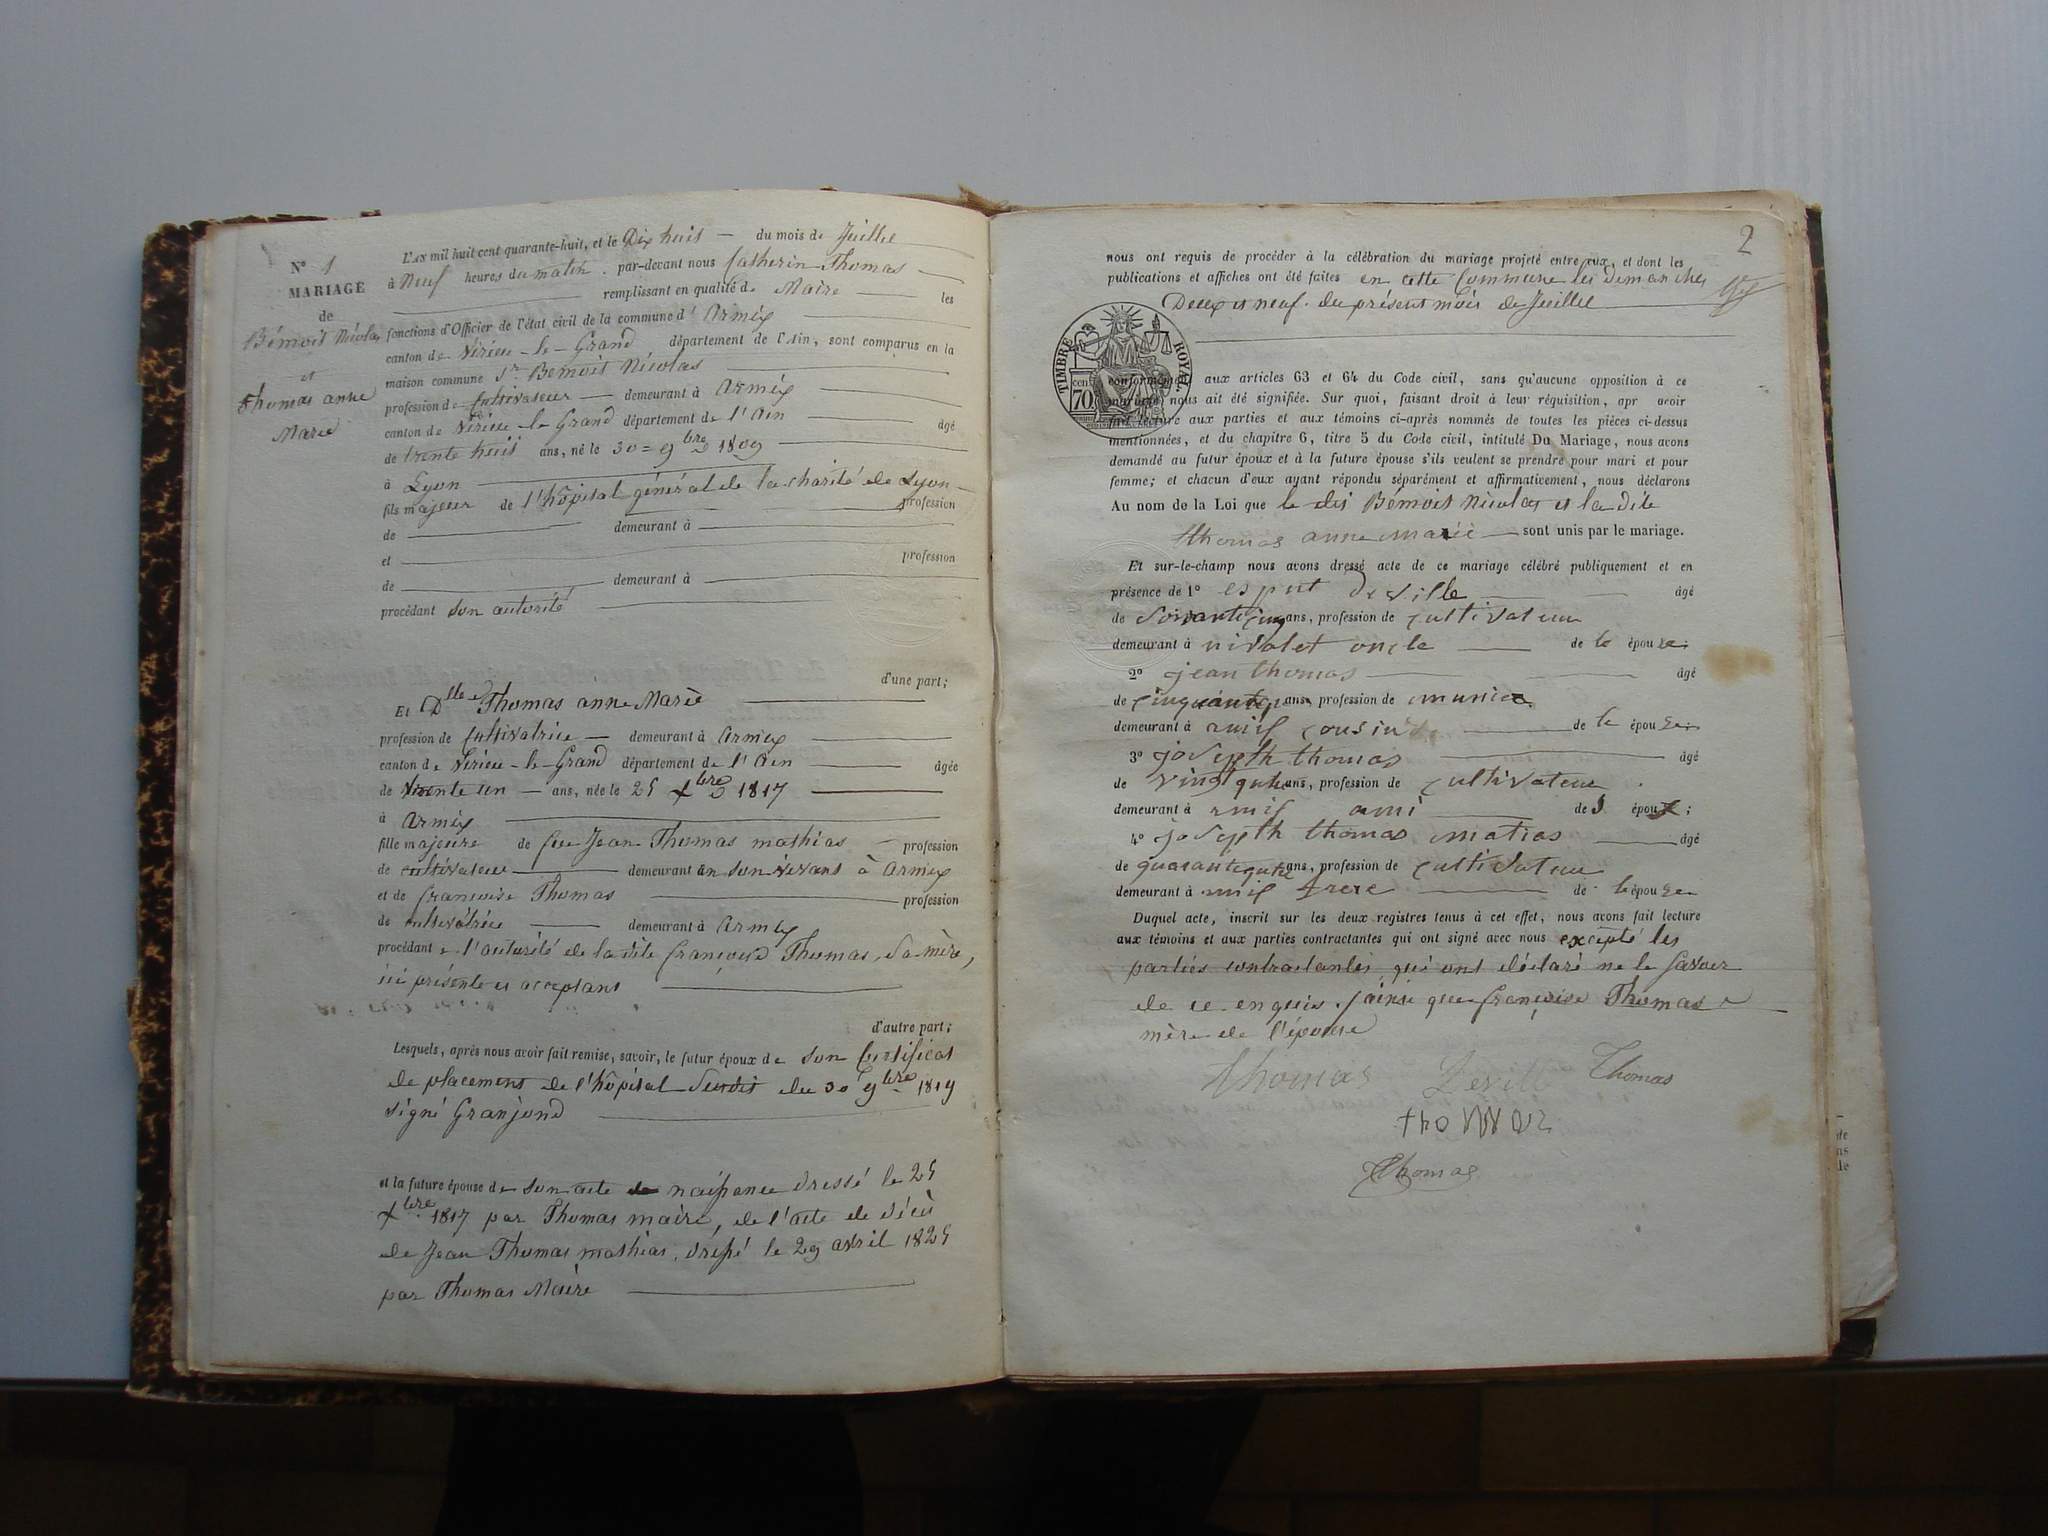 N° 1
MARIAGE
de
Bémoit Nicolas
et
Thomas anne
Marie
L'AN mil huit cent quarante-huit, et le Dix huit du mois de Juillet
à Neuf heures du matin. par-devant nous Catherin Thomas
remplissant en qualité de Maire les
fonctions d'Officier de l'état civil de la commune d' Armix
canton de Virieu-le-Grand département de l'Ain, sont comparus en la
maison commune Sr Bémoit Nicolas
profession de Cultivateur demeurant à Armix
canton de Virieu-le-Grand département de l'Ain âgé
de trente huit ans, né le 30 = 9bre 1809
à Lyon
fils majeur de l'hôpital général de la charité de Lyon
profession
de demeurant à
et profession
de demeurant à
procédant son autorité
d'une part;
Et Dlle Thomas anne Marie
profession de Cultivatrice demeurant à Armix
canton de Virieu-le-Grand département de l'Ain âgée
de trente un ans, née le 25 Xbre 1817
à Armix
fille majeure de feu Jean Thomas mathias profession
de cultivateur demeurant en son vivant à Armix
et de françoise Thomas profession
de cultivatrice demeurant à Armix
procédant de l'autorité de la dite françoise Thomas, sa mère,
ici présente et acceptant
d'autre part;
Lesquels, après nous avoir fait remise, savoir, le futur époux de son Certificat
de placement de l'hôpital Susdit du 30 9bre 1819
signé Granjond
et la future épouse de son acte de naissance dressé le 25
Xbre 1817 par Thomas maire, de l'acte de décès
de Jean Thomas mathias, dressé le 29 avril 1825
par Thomas Maire
2
nous ont requis de procéder à la célébration du mariage projeté entre eux, et dont les
publications et affiches ont été faites en cette Commune les dimanches
Deux et neuf du présent mois de Juillet
TIMBRE ROYAL
70
conformément aux articles 63 et 64 du Code civil, sans qu'aucune opposition à ce
mariage nous ait été signifiée. Sur quoi, faisant droit à leur réquisition, apr avoir
fait lecture aux parties et aux témoins ci-après nommés de toutes les pièces ci-dessus
mentionnées, et du chapitre 6, titre 5 du Code civil, intitulé Du Mariage, nous avons
demandé au futur époux et à la future épouse s'ils veulent se prendre pour mari et pour
femme; et chacun d'eux ayant répondu séparément et affirmativement, nous déclarons
Au nom de la Loi que le dit Bémoit Nicolas et la dite
thomas anne marie sont unis par le mariage.
Et sur-le-champ nous avons dressé acte de ce mariage célébré publiquement et en
présence de 1° esprit deville âgé
de Soixante cinq ans, profession de cultivateur
demeurant à nivolet oncle de le épouse
2° jean thomas âgé
de cinquante ans, profession de
demeurant à cousin de le épouse
3° joseph thomas âgé
de vingt ans, profession de cultivateur
demeurant à ami de l époux;
4° joseph thomas matias âgé
de quarante ans, profession de cultivateur
demeurant à frere de l épouse
Duquel acte, inscrit sur les deux registres tenus à cet effet, nous avons fait lecture
aux témoins et aux parties contractantes qui ont signé avec nous excepté les
parties contractantes qui ont déclaré ne le savoir
de ce enquis. ainsi que françoise Thomas
mère de l'épouse
thomas Deville Thomas
thomas
Thomas